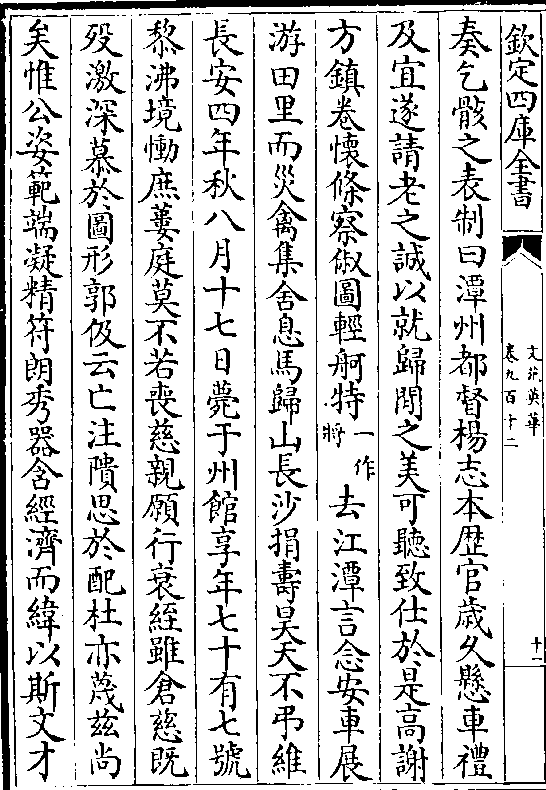 欽定四庫全書
文苑英華
卷九百十二
十一
奏乞骸之表制曰潭州都督楊志本歴官歲久懸車禮
及宜遂請老之誠以就歸閒之美可聽致仕於是高謝
方鎮卷懷條察俶圖輕舸特一作將去江潭言念安車展
游田里而災禽集舍息馬歸山長沙捐壽昊天不弔維
長安四年秋八月十七日薨于州館享年七十有七號
黎沸境慟庶蔞庭莫不若喪慈親願行衰絰雖倉慈既
歿激深慕於圖形郭伋云亡注隤思於配杜亦蔑兹尚
矣惟公姿範端凝精符朗秀器含經濟而緯以斯文才